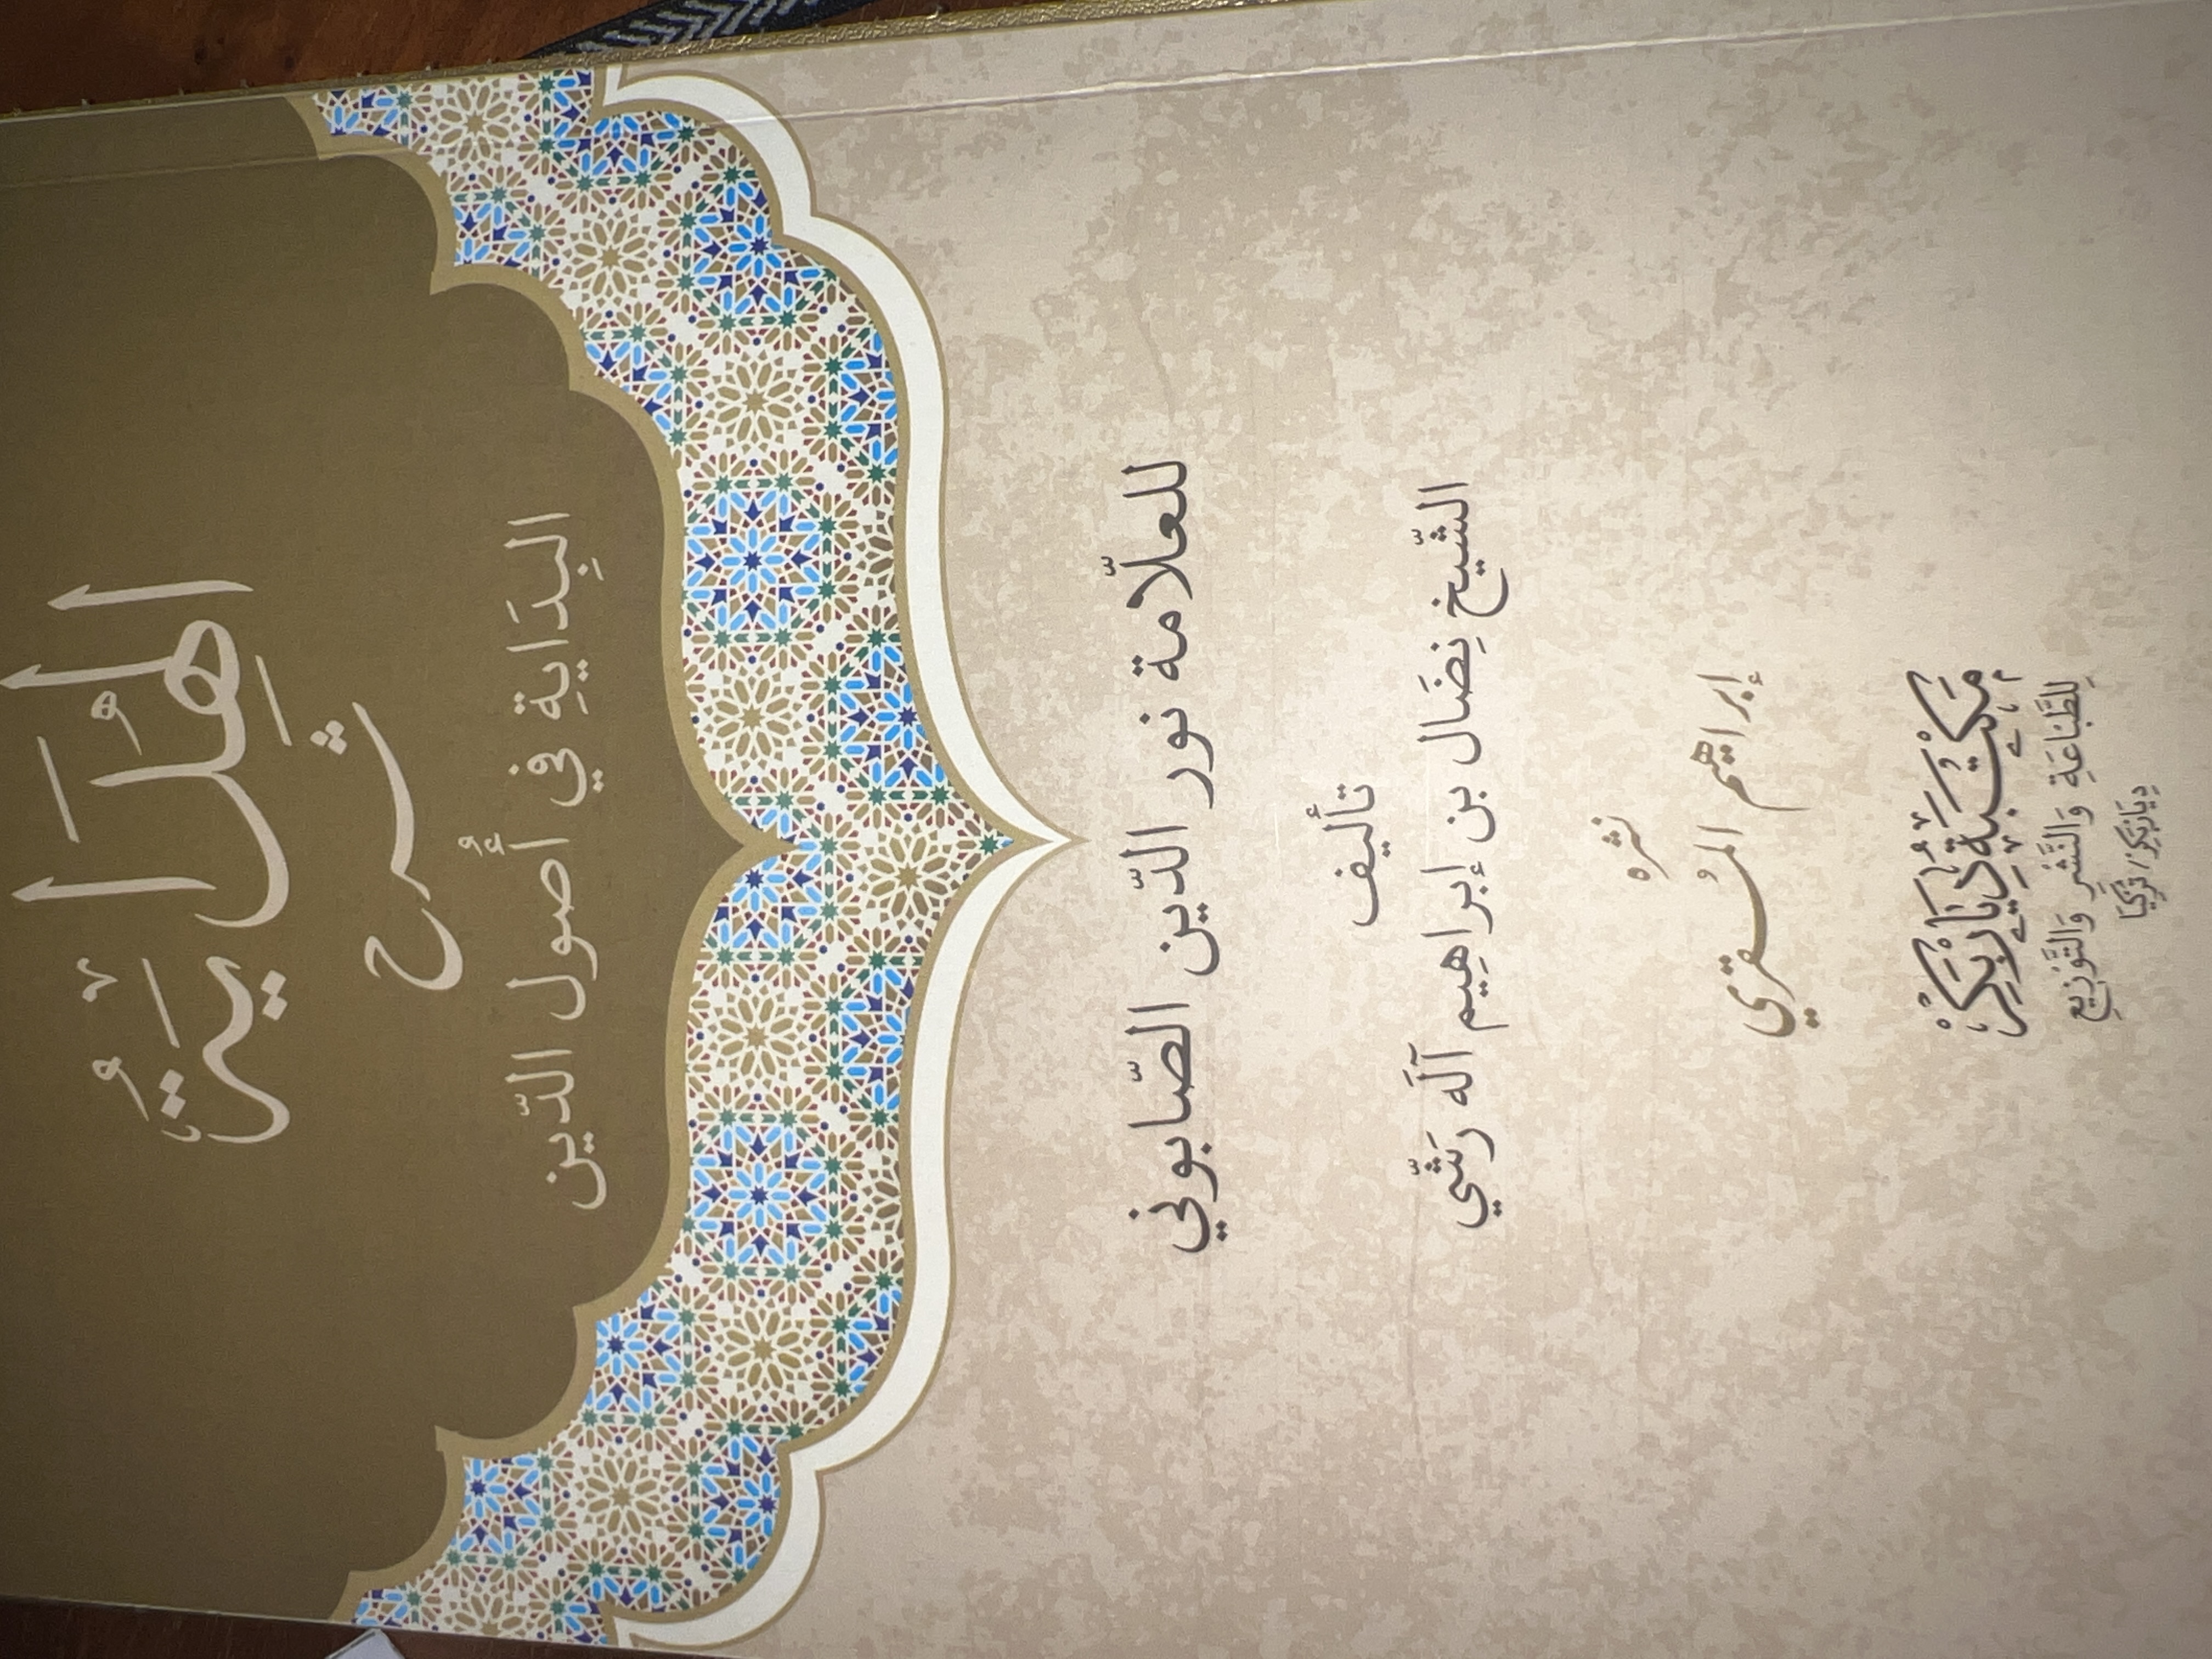 الْهِدَايَةُ
شرح
البِدَايةِ في أُصول الدّين
للعلّامة نور الدّين الصّابوني
تأليف
الشّيخ نِضَال بن إبراهِيم آلَه رَشّي
نشره
إبراهيم المُقري
مَكْتَبَةُ دِيَارْبَكِرْ
لِلطِّبَاعَةِ وَالنَّشْرِ وَالتَّوْزِيعِ
دِيَارْبَكِرْ/ تُرْكِيَا